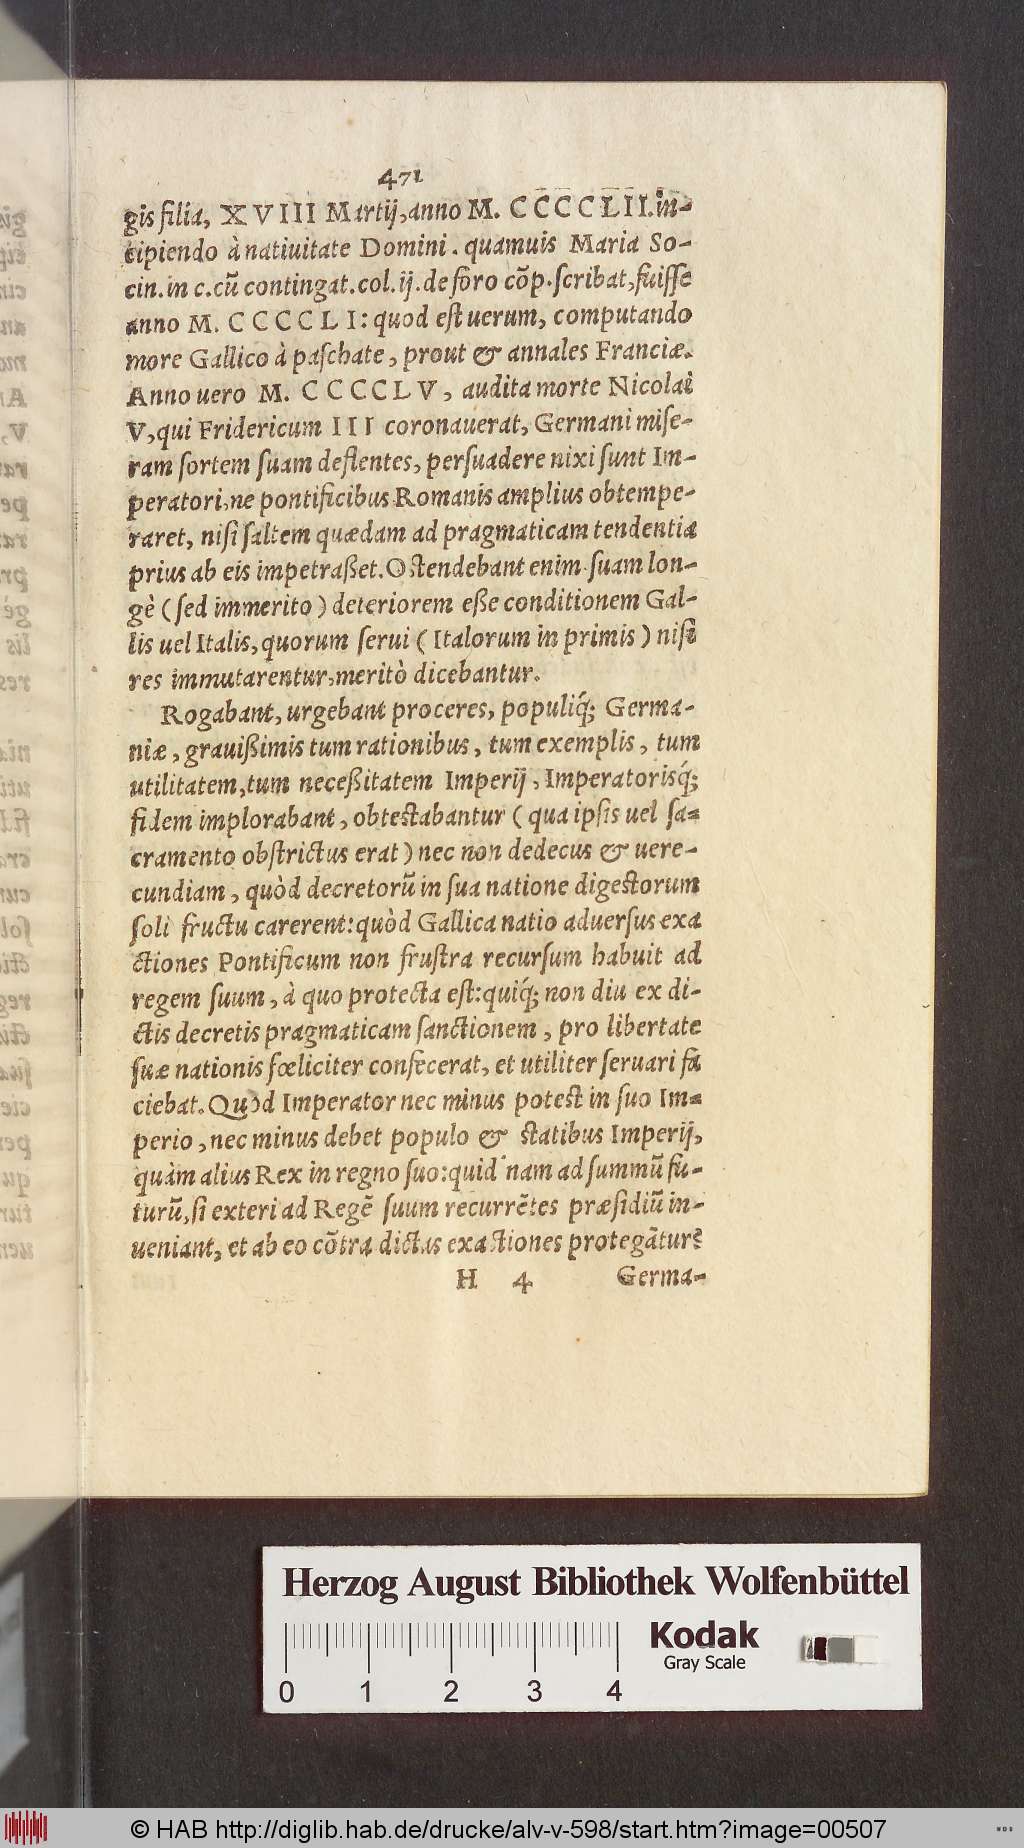 471
gis filia, XVIII Martij, anno M. CCCCLII. in-
cipiendo à natiuitate Domini. quamuis Maria So-
cin. in c. cũ contingat. col. ij. de foro cõp. ſcribat, fuiſſe
anno M. CCCCLI: quod eſt uerum, computando
more Gallico à paſchate, prout & annales Franciæ.
Anno uero M. CCCCLV, audita morte Nicolai
V, qui Fridericum III coronauerat, Germani miſe-
ram ſortem ſuam deflentes, perſuadere nixi ſunt Im-
peratori, ne pontificibus Romanis amplius obtempe-
raret, niſi ſaltem quædam ad pragmaticam tendentia
prius ab eis impetraßet. Oſtendebant enim ſuam lon-
gè (ſed immerito) deteriorem eße conditionem Gal-
lis uel Italis, quorum ſerui (Italorum in primis) niſi
res immutarentur, meritò dicebantur.
Rogabant, urgebant proceres, populiq́; Germa-
niæ, grauißimis tum rationibus, tum exemplis, tum
utilitatem, tum neceßitatem Imperij, Imperatorisq́;
fidem implorabant, obteſtabantur (qua ipſis uel ſa-
cramento obſtrictus erat) nec non dedecus & uere-
cundiam, quòd decretorũ in ſua natione digeſtorum
ſoli fructu carerent: quòd Gallica natio aduerſus exa
ctiones Pontificum non fruſtra recurſum habuit ad
regem ſuum, à quo protecta eſt: quiq́; non diu ex di-
ctis decretis pragmaticam ſanctionem, pro libertate
ſuæ nationis fœliciter confecerat, et utiliter ſeruari fa
ciebat. Quòd Imperator nec minus poteſt in ſuo Im-
perio, nec minus debet populo & ſtatibus Imperij,
quàm alius Rex in regno ſuo: quid nam ad ſummũ fu-
turũ, ſi exteri ad Regẽ ſuum recurrẽtes præſidiũ in-
ueniant, et ab eo cõtra dictas exactiones protegãtur?
H 4 Germa-
Herzog August Bibliothek Wolfenbüttel
Kodak
Gray Scale
0 1 2 3 4
© HAB http://diglib.hab.de/drucke/alv-v-598/start.htm?image=00507